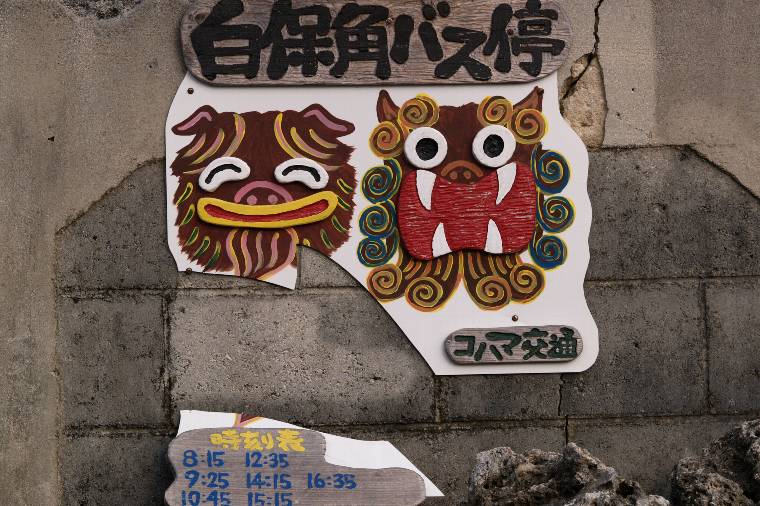 白保角バス停
コハマ交通
時刻表
8:15 12:35
9:25 14:15 16:35
10:45 15:15